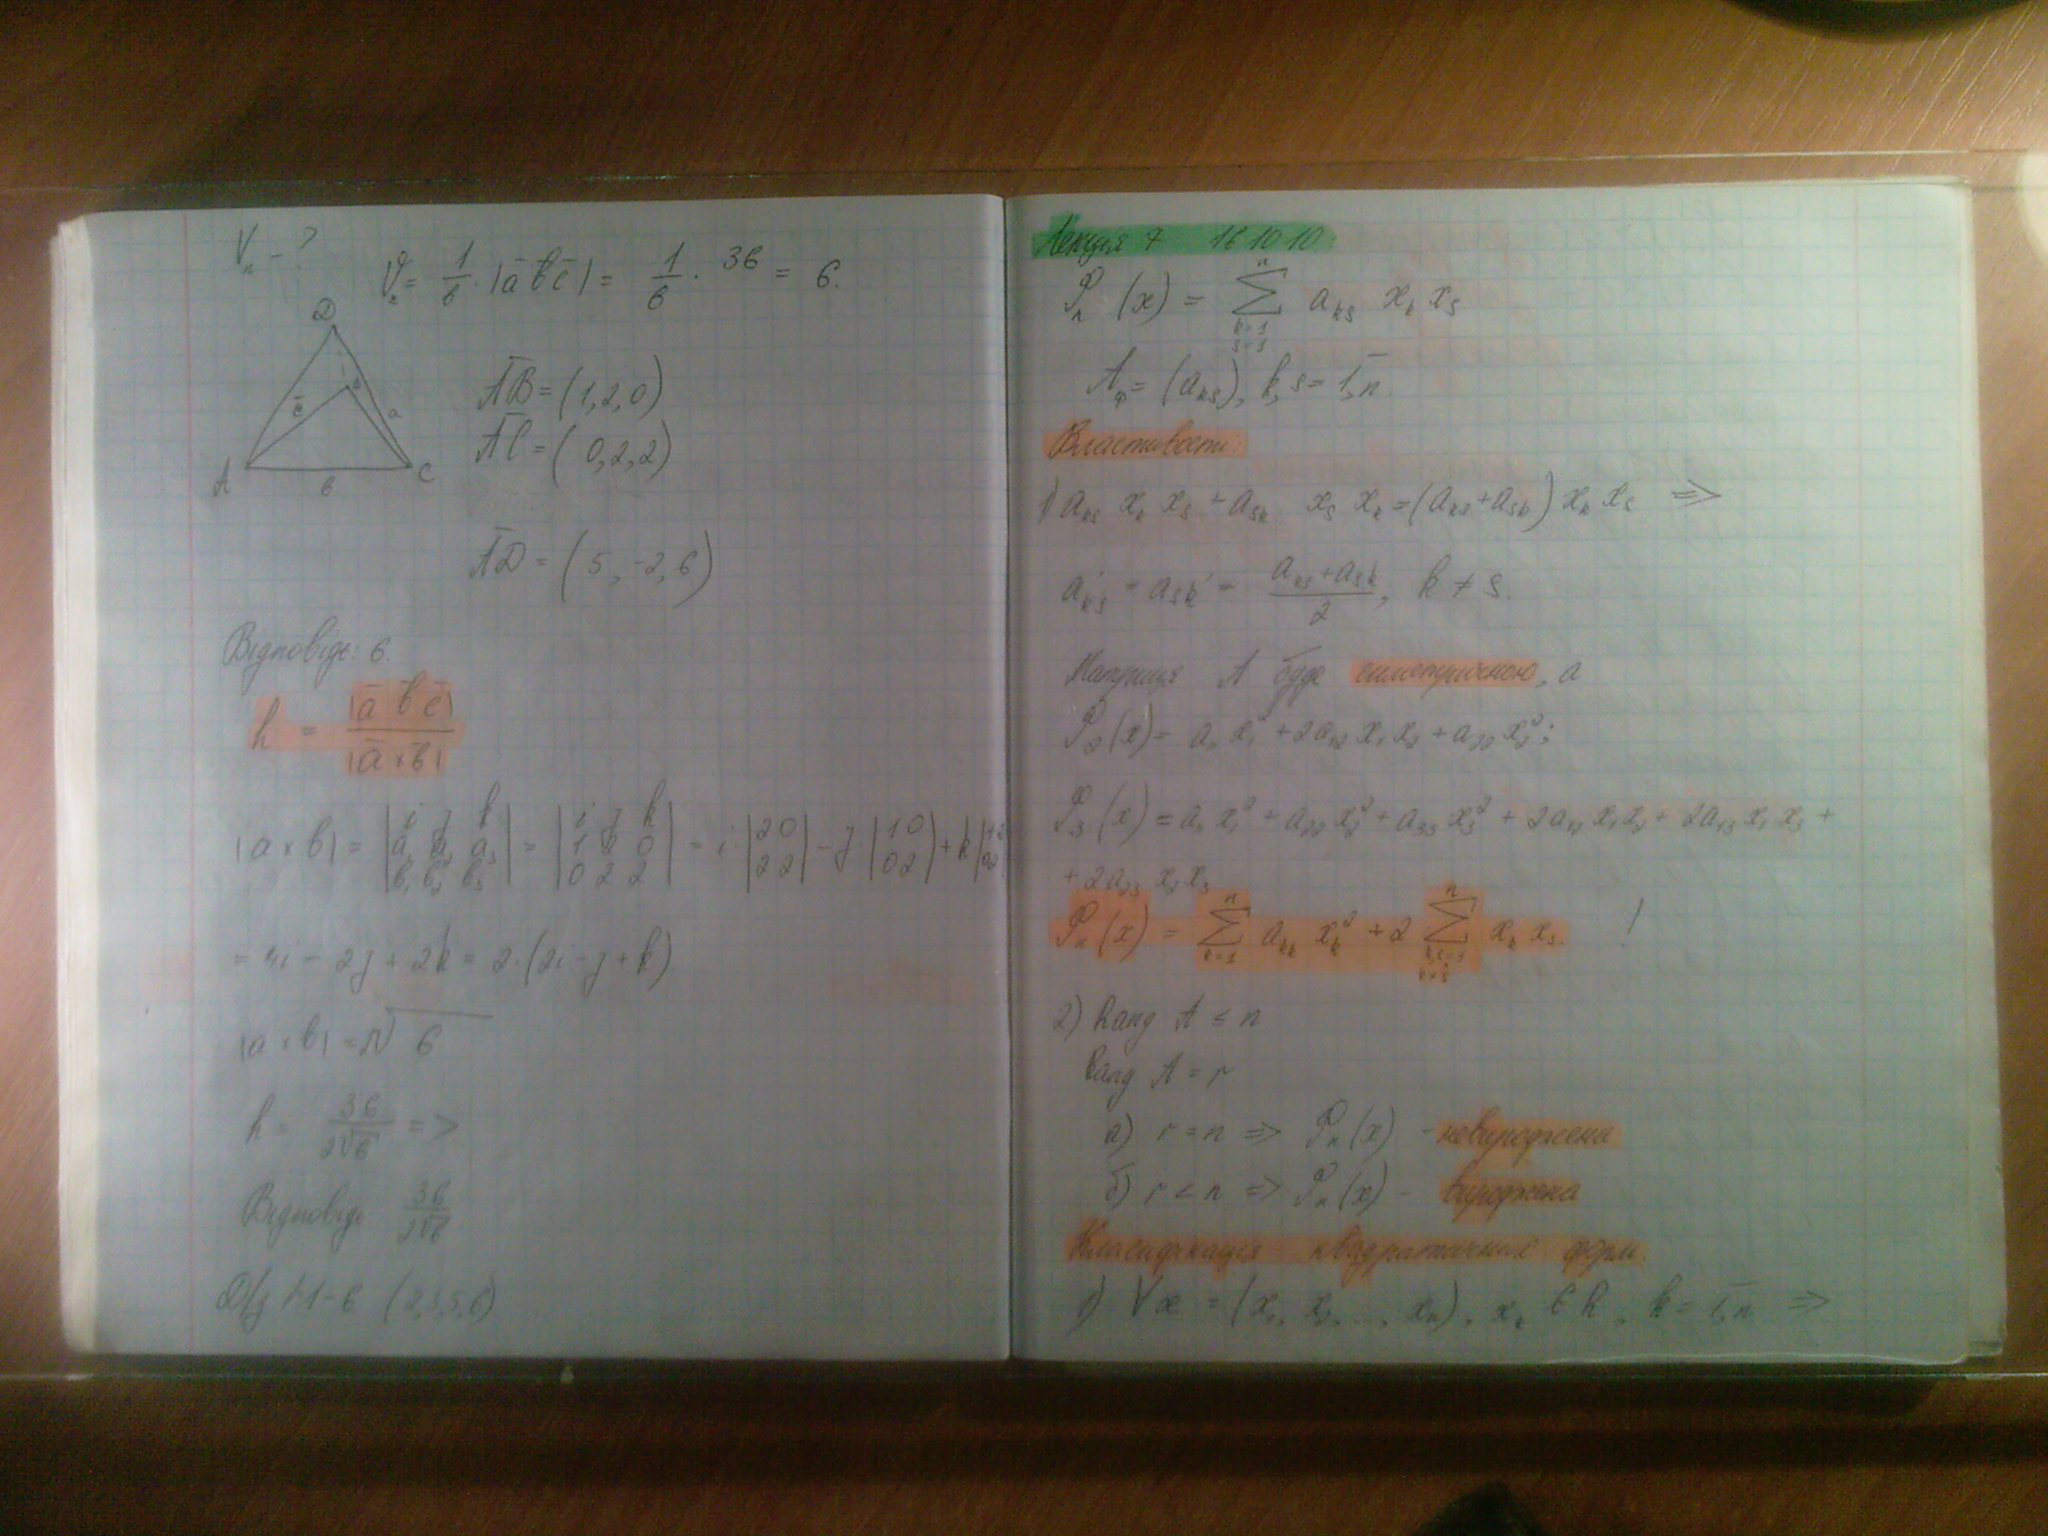 Vₙ - ?
V = 1/6 · |a̅ b̅ c̅| = 1/6 · 36 = 6.
D
c̅
a
A
в
C
A̅B̅ = (1, 2, 0)
A̅C̅ = (0, 2, 2)
A̅D̅ = (5, -2, 6)
Відповідь: 6.
h = |a̅ b̅ c̅| / |a̅ × b̅|
|a × b| = |i j k; a₁ a₂ a₃; b₁ b₂ b₃| = |i j k; 1 2 0; 0 2 2| = i · |2 0; 2 2| - j · |1 0; 0 2| + k |1 2; 0 2|
= 4i - 2j + 2k = 2·(2i - j + k)
|a × b| = 2√6
h = 36/2√6 =>
Відповідь 36/2√6
Д/з (2,3,5,6)
Лекція 7 16 10 10
Φₙ(x) = ∑ⁿ_{k=1, s=1} aₖₛ xₖ xₛ
A_Φ = (aₖₛ), k, s = 1,n̅.
Властивості:
1) aₖₛ xₖ xₛ + aₛₖ xₛ xₖ = (aₖₛ + aₛₖ) xₖ xₛ =>
a'ₖₛ = aₛₖ' = (aₖₛ + aₛₖ)/2, k ≠ s.
Матриця A буде симетричною, а
Φ₂(x) = a₁₁ x₁² + 2a₁₂ x₁ x₂ + a₂₂ x₂²;
Φ₃(x) = a₁₁ x₁² + a₂₂ x₂² + a₃₃ x₃² + 2a₁₂ x₁ x₂ + 2a₁₃ x₁ x₃ +
+ 2a₂₃ x₂ x₃
Φₙ(x) = ∑ⁿ_{k=1} aₖₖ xₖ² + 2 ∑ⁿ_{k,s=1, k≠s} xₖ xₛ. !
2) Rang A ≤ n
Rang A = r
а) r = n => Φₙ(x) - невироджена
б) r < n => Φₙ(x) - вироджена
Класифікація квадратичних форм.
1) ∀x = (x₁, x₂, ..., xₙ), xₖ ∈ R, k = 1,n̅ =>